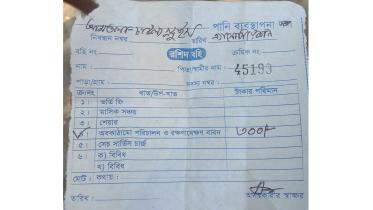 পানি ব্যবস্থাপনা
নিবন্ধন নম্বর তারিখ
বহি নং- রশিদ বহি ক্রমিক নং-
নাম : পিতা/স্বামীর নাম : 45193
পাড়া/গ্রাম : সদস্য নম্বর :
ক্রঃনং খাত/উপ-খাত টাকার পরিমান
১। ভর্তি ফি
২। মাসিক সঞ্চয়
৩। শেয়ার
৪। অবকাঠামো পরিচালন ও রক্ষণাবেক্ষণ বাবদ ৩০০/
৫। সেচ সার্ভিস চার্জ
৬। ক) বিবিধ
খ) বিবিধ
মোট : কথায় :
তারিখ : আদায়কারীর স্বাক্ষর